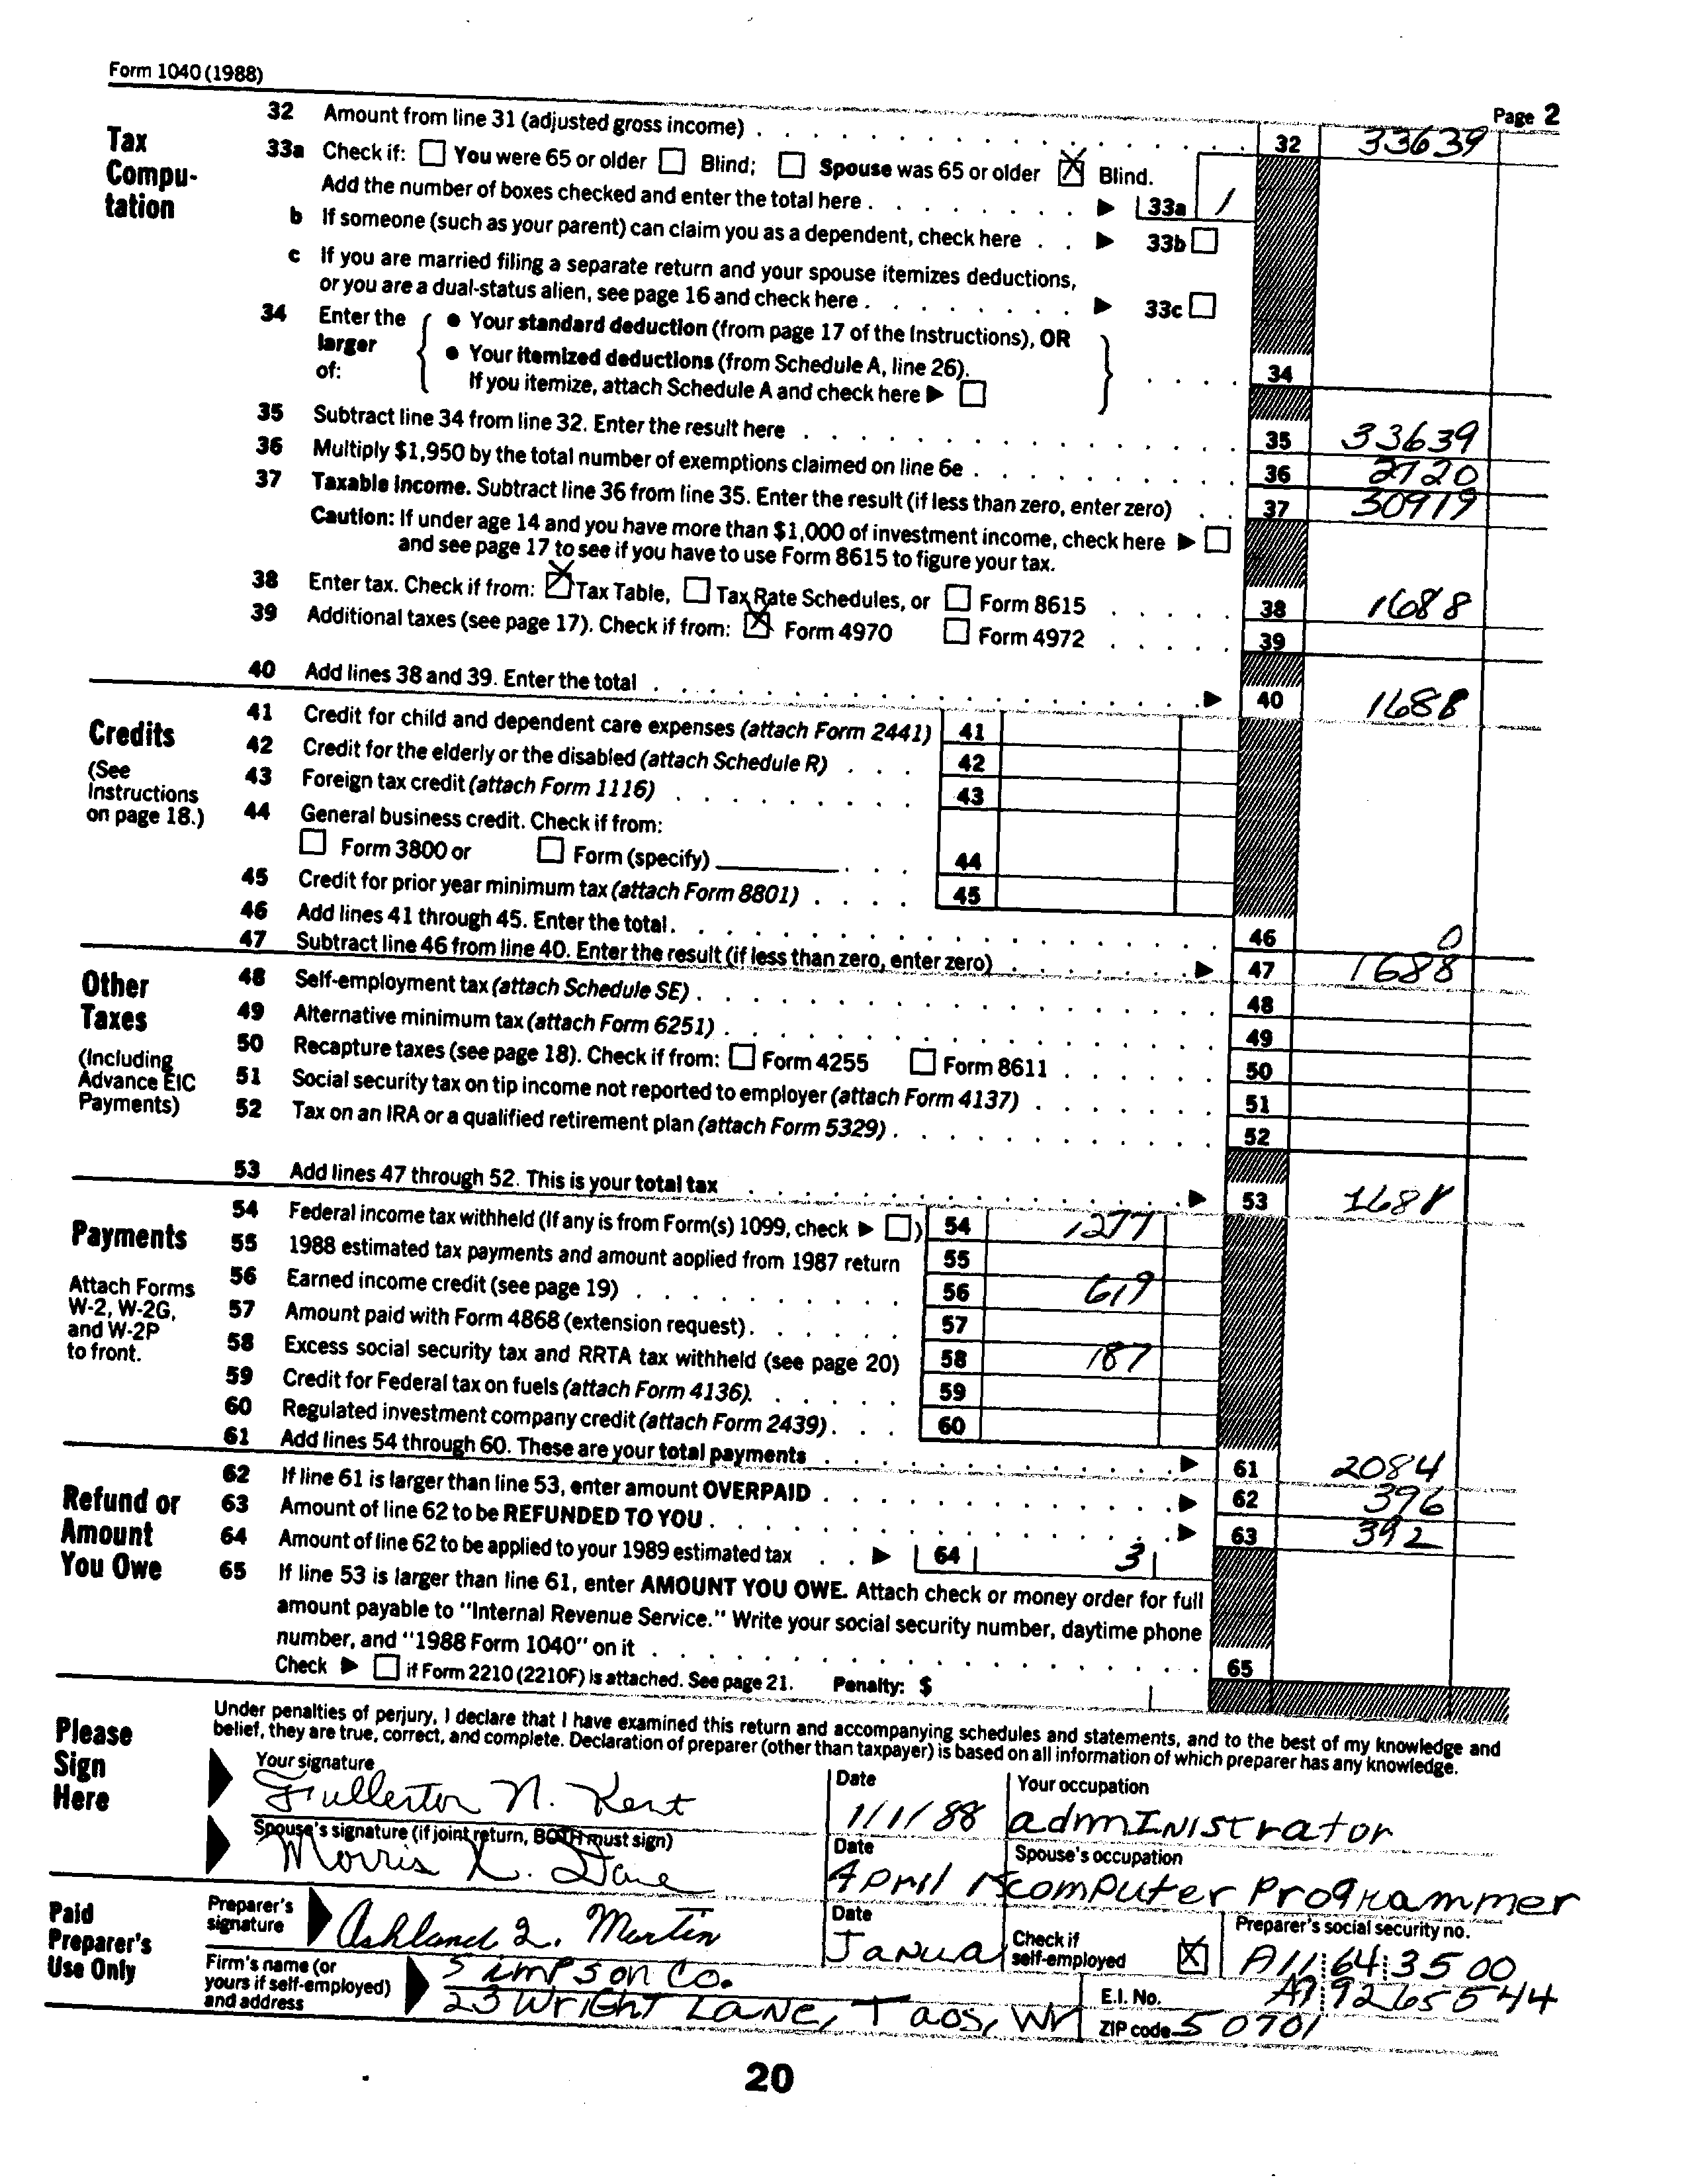 Form 1040 (1988)
Page 2
Tax Computation
32 Amount from line 31 (adjusted gross income) . . . 32 33639
33a Check if: ☐ You were 65 or older ☐ Blind; ☐ Spouse was 65 or older ☒ Blind.
Add the number of boxes checked and enter the total here . . . ▶ 33a 1
b If someone (such as your parent) can claim you as a dependent, check here . . ▶ 33b ☐
c If you are married filing a separate return and your spouse itemizes deductions,
or you are a dual-status alien, see page 16 and check here . . . ▶ 33c ☐
34 Enter the larger of:
● Your standard deduction (from page 17 of the Instructions), OR
● Your itemized deductions (from Schedule A, line 26).
If you itemize, attach Schedule A and check here ▶ ☐ . . . . 34
35 Subtract line 34 from line 32. Enter the result here . . . 35 33639
36 Multiply $1,950 by the total number of exemptions claimed on line 6e . . . 36 2720
37 Taxable income. Subtract line 36 from line 35. Enter the result (if less than zero, enter zero) . . 37 30919
Caution: If under age 14 and you have more than $1,000 of investment income, check here ▶ ☐
and see page 17 to see if you have to use Form 8615 to figure your tax.
38 Enter tax. Check if from: ☒ Tax Table, ☐ Tax Rate Schedules, or ☐ Form 8615 . . . 38 1688
39 Additional taxes (see page 17). Check if from: ☒ Form 4970 ☐ Form 4972 . . . 39
40 Add lines 38 and 39. Enter the total . . . ▶ 40 1688
Credits
(See Instructions on page 18.)
41 Credit for child and dependent care expenses (attach Form 2441) 41
42 Credit for the elderly or the disabled (attach Schedule R) . . . 42
43 Foreign tax credit (attach Form 1116) . . . 43
44 General business credit. Check if from:
☐ Form 3800 or ☐ Form (specify) . . . 44
45 Credit for prior year minimum tax (attach Form 8801) . . . 45
46 Add lines 41 through 45. Enter the total . . . 46 0
47 Subtract line 46 from line 40. Enter the result (if less than zero, enter zero) . . . ▶ 47 1688
Other Taxes
(Including Advance EIC Payments)
48 Self-employment tax (attach Schedule SE) . . . 48
49 Alternative minimum tax (attach Form 6251) . . . 49
50 Recapture taxes (see page 18). Check if from: ☐ Form 4255 ☐ Form 8611 . . . 50
51 Social security tax on tip income not reported to employer (attach Form 4137) . . . 51
52 Tax on an IRA or a qualified retirement plan (attach Form 5329) . . . 52
53 Add lines 47 through 52. This is your total tax . . . ▶ 53 1688
Payments
Attach Forms W-2, W-2G, and W-2P to front.
54 Federal income tax withheld (If any is from Form(s) 1099, check ▶ ☐) 54 1277
55 1988 estimated tax payments and amount applied from 1987 return 55
56 Earned income credit (see page 19) . . . 56 619
57 Amount paid with Form 4868 (extension request) . . . 57
58 Excess social security tax and RRTA tax withheld (see page 20) 58 187
59 Credit for Federal tax on fuels (attach Form 4136). . . . 59
60 Regulated investment company credit (attach Form 2439) . . . 60
61 Add lines 54 through 60. These are your total payments . . . ▶ 61 2084
Refund or Amount You Owe
62 If line 61 is larger than line 53, enter amount OVERPAID . . . ▶ 62 396
63 Amount of line 62 to be REFUNDED TO YOU . . . ▶ 63 392
64 Amount of line 62 to be applied to your 1989 estimated tax . . ▶ 64 3
65 If line 53 is larger than line 61, enter AMOUNT YOU OWE. Attach check or money order for full
amount payable to "Internal Revenue Service." Write your social security number, daytime phone
number, and "1988 Form 1040" on it . . . 65
Check ▶ ☐ if Form 2210 (2210F) is attached. See page 21. Penalty: $
Please Sign Here
Under penalties of perjury, I declare that I have examined this return and accompanying schedules and statements, and to the best of my knowledge and
belief, they are true, correct, and complete. Declaration of preparer (other than taxpayer) is based on all information of which preparer has any knowledge.
Your signature Fullerton N. Kent
Date 1/1/88
Your occupation administrator
Spouse's signature (if joint return, BOTH must sign) Morris X. Dane
Date April 15
Spouse's occupation computer programmer
Paid Preparer's Use Only
Preparer's signature Ashland 2. Martin
Date Janua
Check if self-employed ☒
Preparer's social security no. A11 64 3500
Firm's name (or yours if self-employed) and address
Simpson Co.
E.I. No. A1 9265544
23 Wright Lane, Taos, WY
ZIP code 50701
20